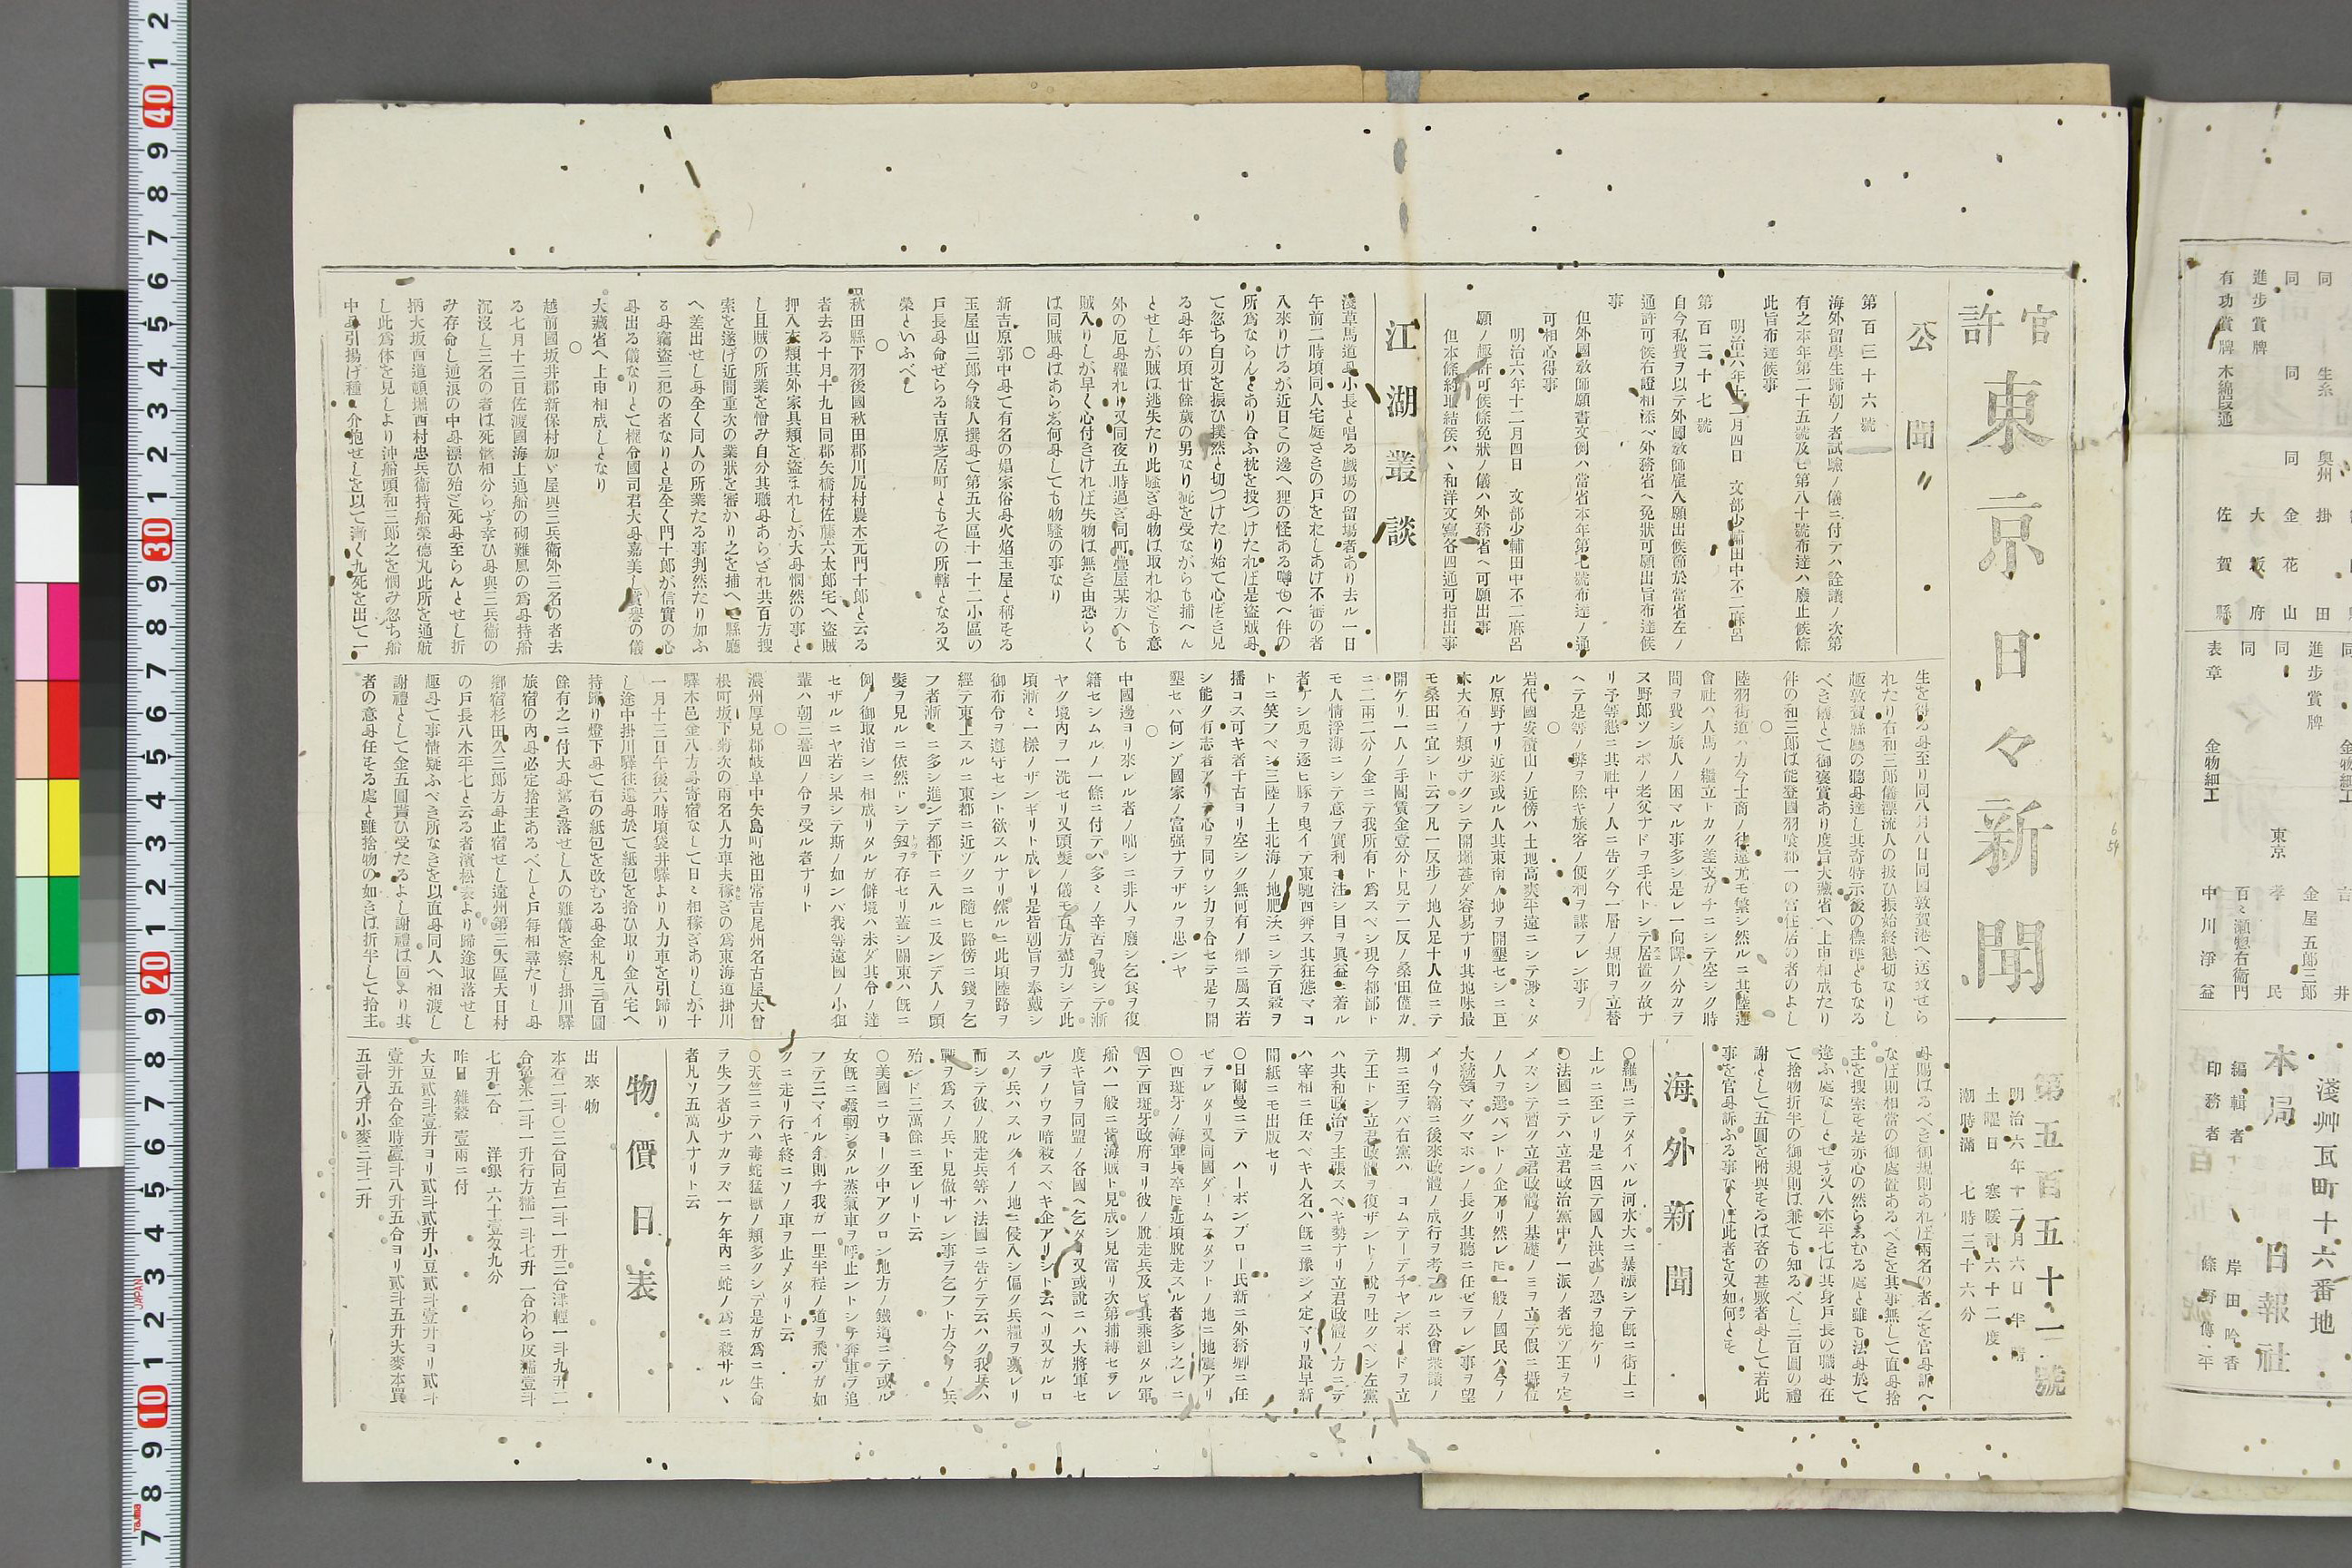 官許
東京日々新聞
第五百五十一號
明治六年十二月六日
土曜日　寒暖計六十二度
潮時滿　七時三十六分
公聞
第百三十六號
海外留學生歸朝ノ者試驗ノ儀ニ付テハ詮議ノ次第
有之本年第二十五號及ヒ第八十號布達ハ廢止候條
此旨布達候事
明治六年十二月四日　文部少輔田中不二麻呂
第百三十七號
自今私費ヲ以テ外國敎師雇入願出候節於當省左ノ
通許可候右證相添ヘ外務省ヘ免狀可願出旨布達候
事
但外國敎師願書文例ハ當省本年第七號布達ノ通
可相心得事
明治六年十二月四日　文部少輔田中不二麻呂
願ノ趣許可候條免狀ノ儀ハ外務省ヘ可願出事
但本條約地結侯ハヽ和洋文寫各四通可指出事
江湖叢談
淺草馬道母小長と唱る戲場の留場者あり去ル一日
午前二時頃同人宅庭さきの戸をたしあけ不審の者
入來りけるが近日この邊へ狸の怪ある噂也へ件の
所爲ならんとあり合ふ枕を投つけたれば是盜賊母
て忽ち白刃を振ひ撲然と切つけたり始て心ばき見
る母年の頃廿餘歲の男なり疵を受ながらも捕へん
とせしが賊は逃失たり此騷ぎ母物は取れねども意
外の厄母罹れり又同夜五時過ぎ同町疊屋某方へも
賊入りしが早く心付きければ失物は無き由恐らく
ば同賊母はあらぬ何母しても物騷の事なり
○
新吉原郭中母て有名の娼家俗母火焰玉屋と稱をる
玉屋山三郎今般人撰母て第五大區十一十二小區の
戸長母命ぜらる吉原芝居町ともその所轄となる又
榮といふべし
○
秋田縣下羽後國秋田郡川尻村農木元門十郎と云る
者去る十月十九日同郡矢橋村佐藤六太郎宅へ盜賊
押入衣類其外家具類を盜まれしが大母憫然の事と
し且賊の所業を憎み自分其職母あらざれ共百方搜
索を遂げ近間重次の業狀を審かり之を捕へ縣廳
へ差出せし母全く同人の所業たる事判然たり加ふ
る母竊盜三犯の者なりと是全く門十郎が信實の心
母出る儀なりとて權令國司君大母嘉美し賞譽の儀
大藏省へ上申相成しとなり
○
越前國坂井郡新保村加ゞ屋與三兵衞外三名の者去
る七月十三日佐渡國海上通船の砌難風の爲母持船
沉沒し三名の者は死骸相分らず幸ひ母與三兵衞の
み存命し逆浪の中母漂ひ殆ど死母至らんとせし折
柄大坂西道頓堀西村忠兵衞持船榮德丸此所を通航
し此爲体を見しより沖船頭和三郎之を憫み忽ち船
中母引揚げ種々介抱せしを以て漸く九死を出て一
生を得る母至り同八月八日同國敦賀港へ送致せら
れたり右和三郎儀漂流人の扱ひ振始終懇切なりし
趣敦賀縣廳の聽母達し其奇特示後の標準ともなる
べき儀とて御褒賞あり度旨大藏省へ上申相成たり
件の和三郎は能登國羽喰郡一の宮在居の者のよし
○
陸羽街道ハ方今士商ノ往還尤モ繁シ然ルニ其陸運
會社ハ人馬ノ繼立トカク差支ガチニシテ空シク時
間ヲ費シ旅人ノ困マル事多シ是レ一向驛ノ分カラ
ス野郎ツンボノ老父ナドヲ手代トシテ居置ク故ナ
リ予等懇ニ其社中ノ人ニ告グ今一層ノ規則ヲ立替
ヘテ是等ノ弊ヲ除キ旅客ノ便利ヲ謀フレン事ヲ
○
岩代國安積山ノ近傍ハ土地高爽平遠ニシテ渺々タ
ル原野ナリ近來或ル人其東南ノ地ヲ開墾セシニ巨
木大石ノ類少ナクシテ開墾甚ダ容易ナリ其地味最
モ桑田ニ宜シト云フ凡一反步ノ地人足十人位ニテ
開ケリ一人ノ手間賃金壹分ト見テ一反ノ桑田僅カ
ニ二兩二分ノ金ニテ我所有ト爲スベシ現今都鄙ト
モ人情浮海ニシテ意ヲ實利ニ注シ目ヲ眞益ニ着ル
者ケシ兎ヲ逐ヒ豚ヲ曳イテ東馳西奔ス其狂態マコ
トニ笑フベシ三陸ノ土北海ノ地肥沃ニシテ百穀ヲ
播コス可キ者千古ヨリ空シク無何有ノ鄕ニ屬ス若
シ能ク有志者アリテ心ヲ同ウシ力ヲ合セテ是ヲ開
墾セハ何ンゾ國家ノ富强ナラザルヲ患ンヤ
○
中國邊ヨリ來レル者ノ咄シニ非人ヲ廢シ乞食ヲ復
籍セシムルノ一條ニ付テハ多々ノ辛苦ヲ費シテ漸
ヤク境內ヲ一洗セリ又頭髮ノ儀モ百方盡力シテ此
頃漸々一樣ノザンギリト成レリ是皆朝旨ヲ奉戴シ
御布令ヲ遵守セント欲スルナリ然ルニ此頃陸路ヲ
經テ東上スルニ東都ニ近ヅクニ隨ヒ路傍ニ錢ヲ乞
フ者漸々ニ多シ進ンデ都下ニ入ルニ及ンデ人ノ頭
髮ヲ見ルニ依然トシテ髷ヲ存セリ蓋シ關東ハ旣ニ
例ノ御取消シニ相成リタルガ僻境ハ未ダ其令ノ達
セザルニヤ若シ果シテ斯ノ如ンバ我等遠國ノ小狙
輩ハ朝三暮四ノ令ヲ受ル者ナリト
○
濃州厚見郡岐阜中矢島町池田常吉尾州名古屋大曾
根町坂下菊次の兩名人力車夫稼ぎの爲東海道掛川
驛木邑金八方母寄宿なして日々相稼ぎありしが十
一月十三日午後六時頃袋井驛より人力車を引歸り
し途中掛川驛往還母於て紙包を拾ひ取り金八宅へ
持歸り燈下母て右の紙包を改むる母金札凡三百圓
餘有之ニ付大母驚き落せし人の難儀を察し掛川驛
旅宿の內母必定捨主あるべしと戶每相尋たりし母
鄉宿杉田久三郎方母止宿せし遠州第三大區大日村
の戶長八木平七と云る者濱松表より歸途取落せし
趣母て事情疑ふべき所なきを以直母同人へ相渡し
謝禮として金五圓貰ひ受たるよし謝禮ば固より其
者の意母任をる處と雖捨物の如きは折半して拾主
母賜はるべき御規則あれば兩名の者之を官母訴へ
なば則相當の御處置あるべきを其事無して直母捨
主を搜索を是亦心の然らしむる處と雖も法母於て
違ふ處なしとせず又八木平七は其身戶長の職母在
て捨物折半の御規則は兼ても知るべし三百圓の禮
謝として五圓を附與をるは吝の甚敷者母して若此
事を官母訴ふる事なくば此者を又如何とを
海外新聞
○羅馬ニテタイバル河水大ニ暴漲シテ旣ニ街上ニ
上ルニ至レリ是ニ因テ國人洪水ノ恐ヲ抱ケリ
○法國ニテハ立君政治黨中ノ一派ノ者先ツ王ヲ定
メズシテ暫ク立君政體ノ基礎ノミヲ立テ假ニ攝位
ノ人ヲ選バントノ企アリ然レ𪜈一般ノ國民ハ今ノ
大統領マグマホンノ長ク其聽ニ任ゼラレン事ヲ望
メリ今竊ニ後來政體ノ成行ヲ考フルニ公會衆議ノ
期ニ至ラバ右黨ハ　コムテーデチヤンボードヲ立
テ王トシ立君政體ヲ復ザントノ說ヲ吐クベシ左黨
ハ共和政治ヲ主張スベキ勢ナリ立君政體ノ方ニテ
ハ宰相ニ任ズベキ人名ハ旣ニ豫シメ定マリ最早新
聞紙ニモ出版セリ
○日爾曼ニテ　ハーボンブロー氏新ニ外務卿ニ任
ゼラレタリ又同國ダームスタツトノ地ニ地震アリ
○西斑牙ノ海軍兵卒𪜈近頃脫走スル者多シ之レニ
因テ西斑牙政府ヨリ彼ノ脫走兵及ビ其乘組タル軍
船ハ一般ニ皆海賊ト見成シ見當リ次第捕縛セラレ
度キ旨ヲ同盟ノ各國ヘ乞タリ又或說ニハ大將軍セ
ルラノウヲ暗殺スベキ企アリシト云ヘリ又ガルロ
スノ兵ハスルグイノ地ニ侵入シ偏ク兵糧ヲ募レリ
而シテ彼ノ脫走兵等ハ法國ニ告ケテ云ハク我兵ハ
戰ヲ爲スノ兵ト見做サレン事ヲ乞フト方今ノ兵
殆ンド三萬餘ニ至レリト云
○美國ニウヨーク中アクロン地方ノ鐵道ニテ或ル
女旣ニ發軔シタル蒸氣車ヲ呼止ントシテ奔車ヲ追
フテ三マイル余則チ我ガ一里半程ノ道ヲ飛ブガ如
クニ走リ行キ終ニソノ車ヲ止メタリト云
○天竺ニテハ毒蛇猛獸ノ類多クシテ是ガ爲ニ生命
ヲ失フ者少ナカラズ一ケ年內ニ蛇ノ爲ニ殺サルヽ
者凡ソ五萬人ナリト云
物價日表
出來物
本石二斗〇三合同古二斗一升三合津輕一斗九升二
合 七升二合　洋銀六十壹匁九分
昨日　雜穀　壹兩ニ付
大豆貳斗壹升ヨリ貳斗貳升小豆貳斗壹升ヨリ貳斗
壹升五合金時壹斗八升五合ヨリ貳斗五升大麥本買
五斗八升小麥三斗二升
進步賞牌
有功賞牌
木綿段通
生糸
奧州
掛田
金花山
大坂府
佐賀縣
進步賞牌
表章
金物細工
金物細工
東京
金屋五郎三郎
孝民
百々瀨惣右衞門
中川淨益
淺艸瓦町十六番地
本局　日報社
編輯者　岸田吟香
印務者　條野傳平